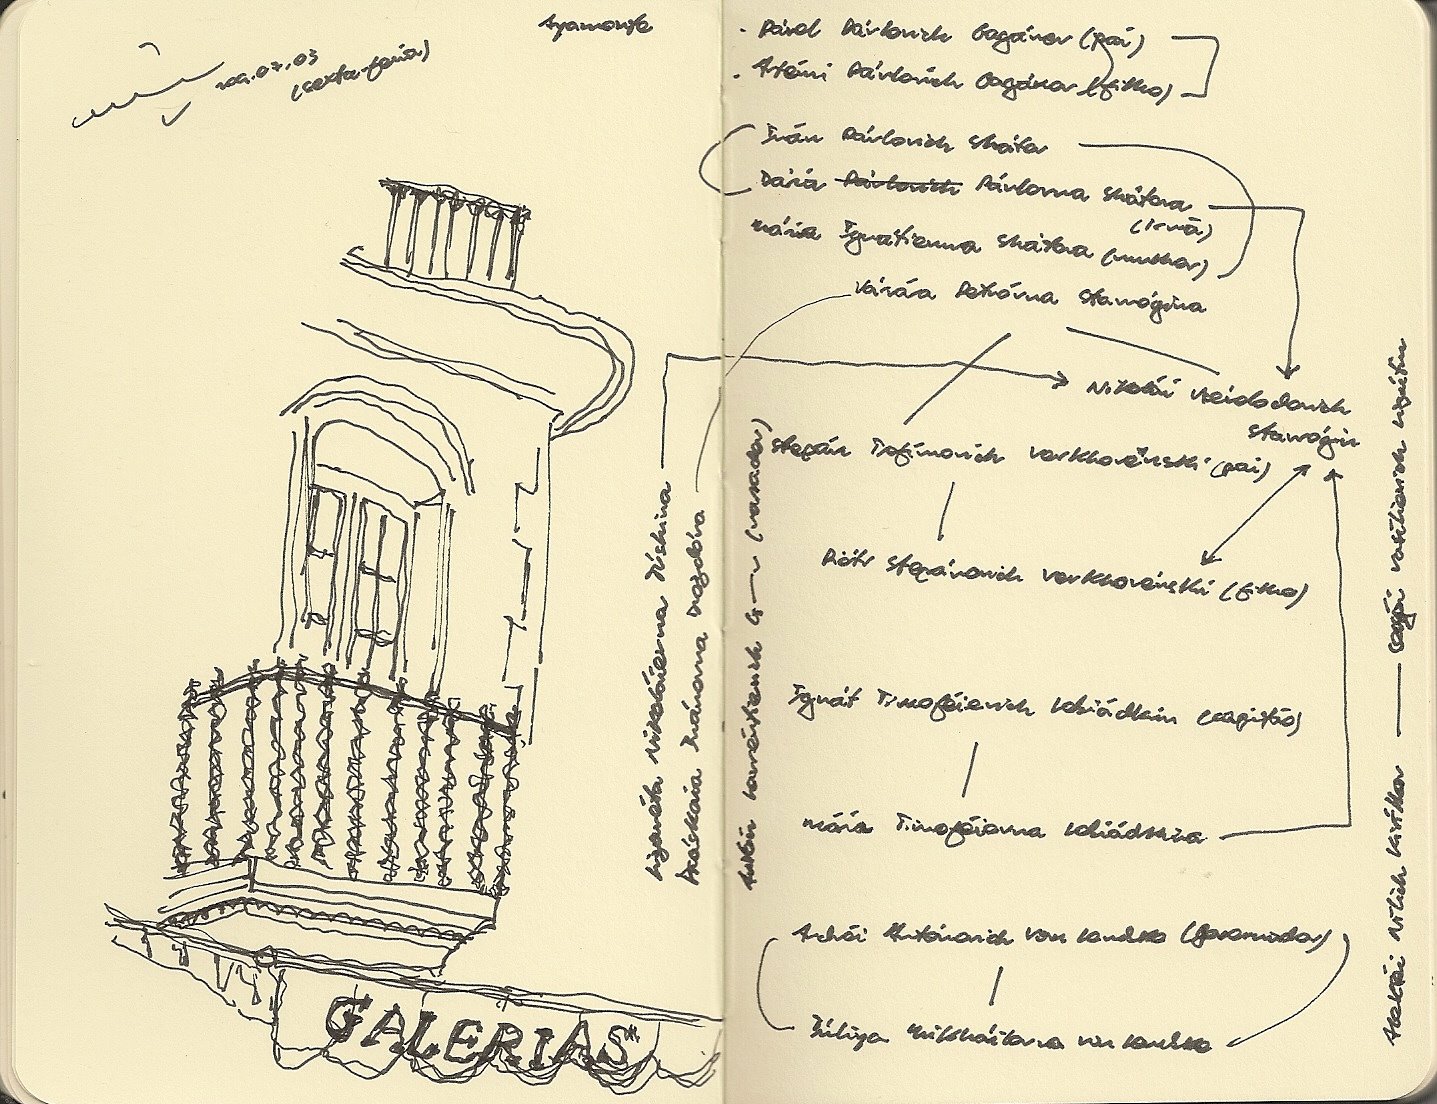 Ayamonte
(sexta-feira)
GALERIAS
Lizavéta Nikoláievna Túshina
Praskóvia Ivánovna Drozdóva
. Pável Pávlovich Gagánov (pai)
. Artémi Pávlovich Gagánov (filho)
Iván Pávlovich Shátov
Dária Pávlovich Pávlovna Shátova
(irmã)
Mária Ignátievna Shátova (mulher)
Varvára Petróvna Stavróguina
Nikolái Vsévolodovich
Stavróguin
Stepán Trofímovich Verkhovénski (pai)
Piótr Stepánovich Verkhovénski (filho)
Ignát Timoféievich Lebiádkin (capitão)
Mária Timoféievna Lebiádkina
Andréi Antónovich von Lembke (governador)
Iúliya Mikháilovna von Lembke
Antón Lavréntievich G (narrador)
Alekséi Nílich Kiríllov — Sergéi Vasílievich Lipútin